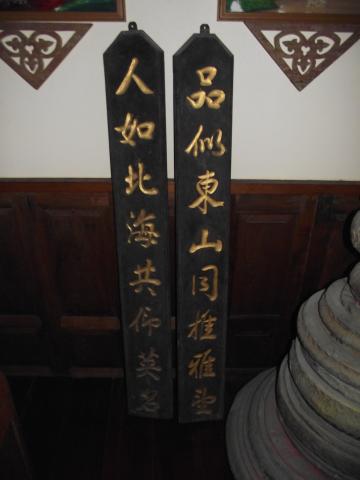 品似東山同推雅望
人如北海共仰英名